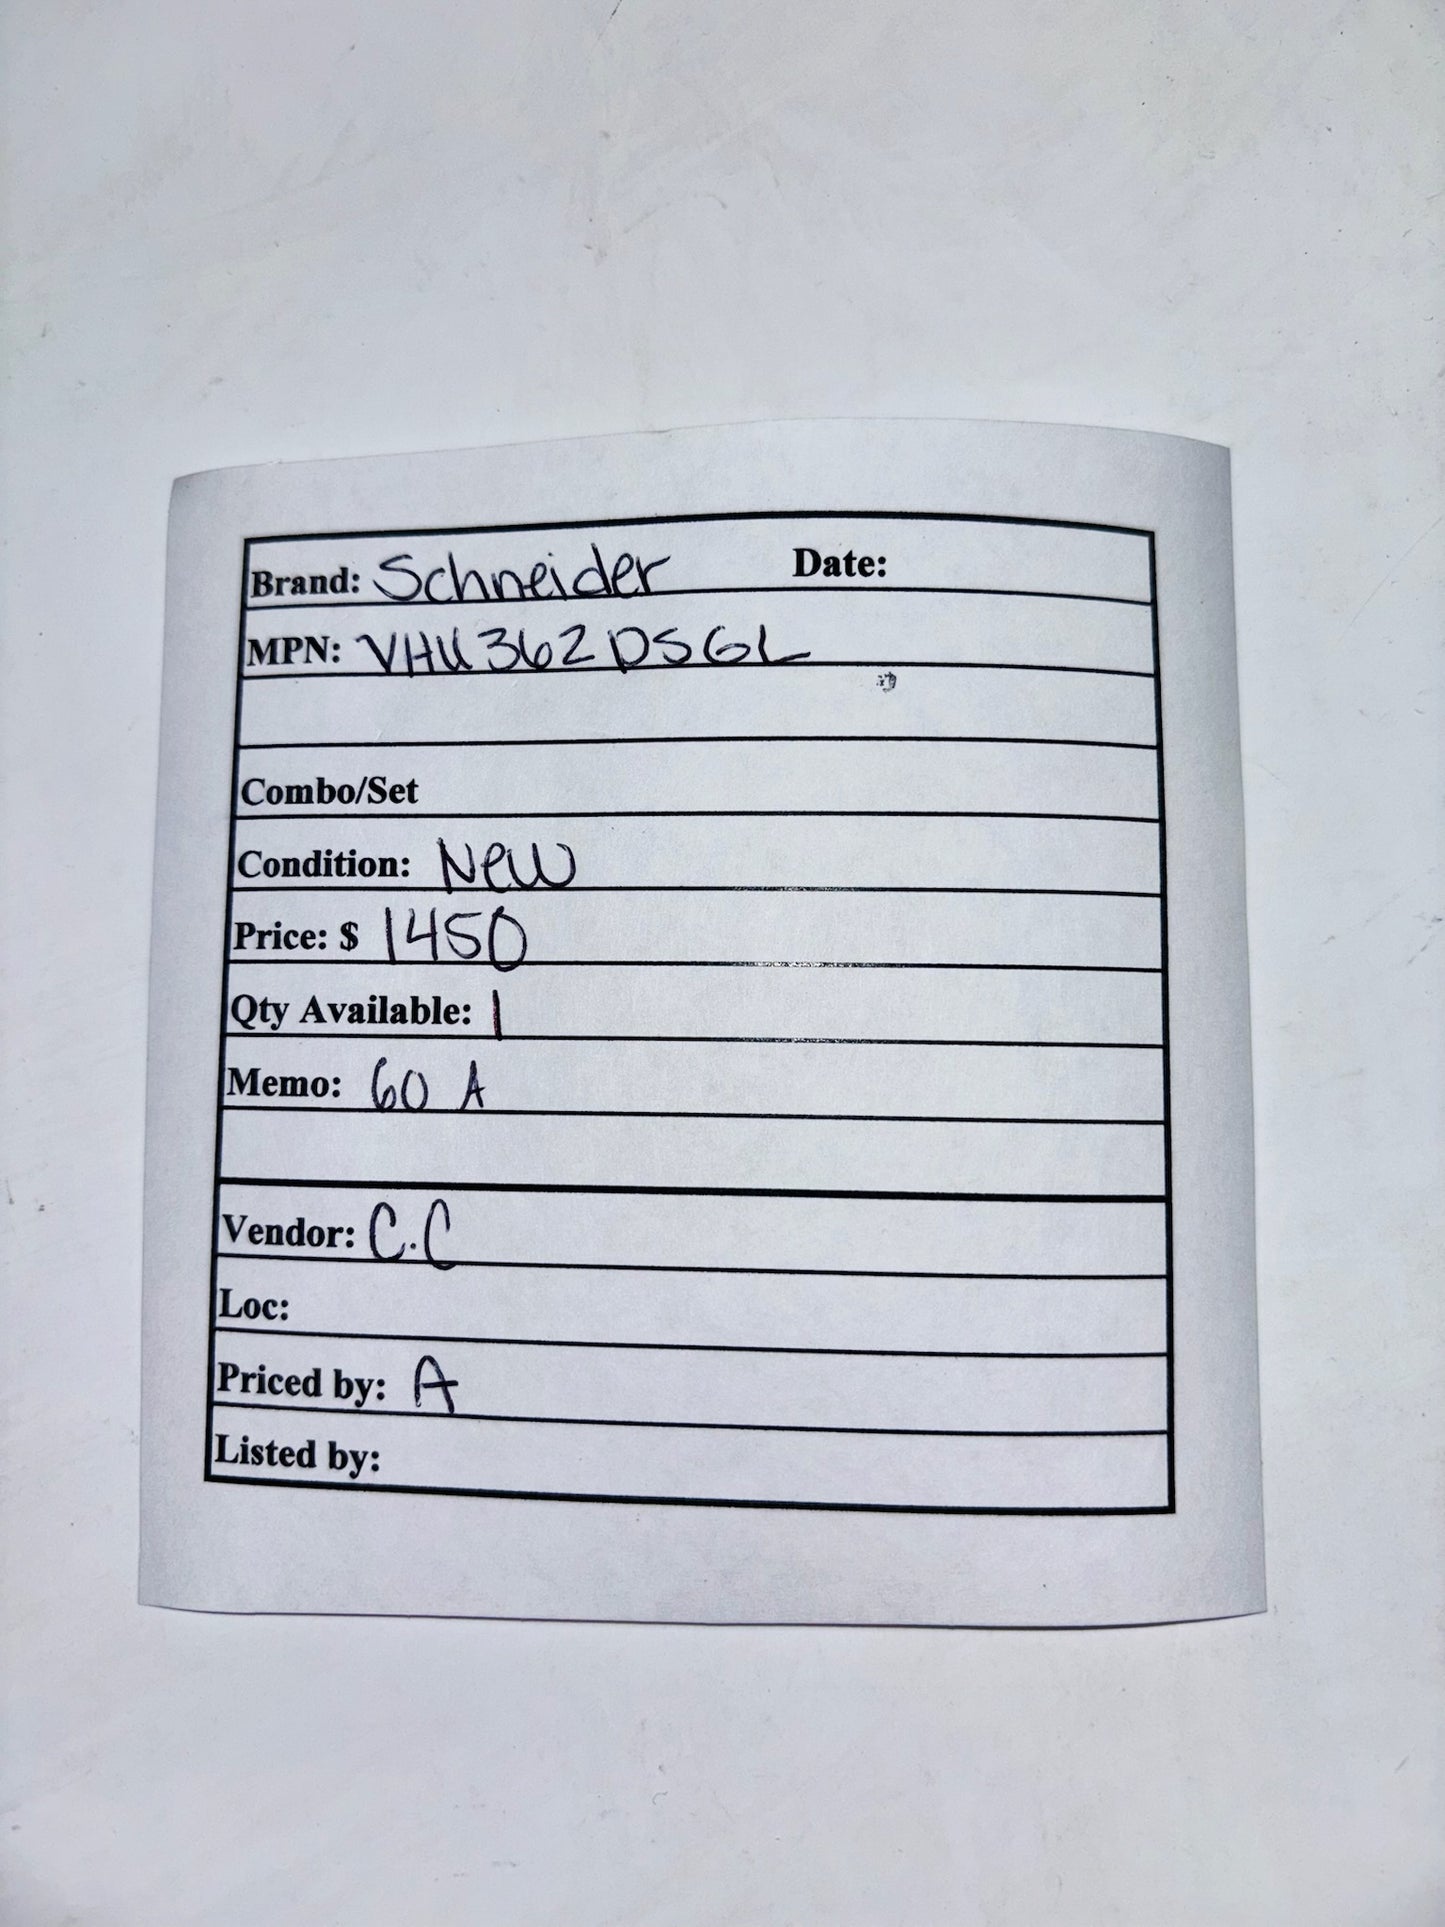 Brand: Schneider Date:
MPN: VHU362DSGL
Combo/Set
Condition: New
Price: $ 1450
Qty Available: 1
Memo: 60 A
Vendor: C.C
Loc:
Priced by: A
Listed by: